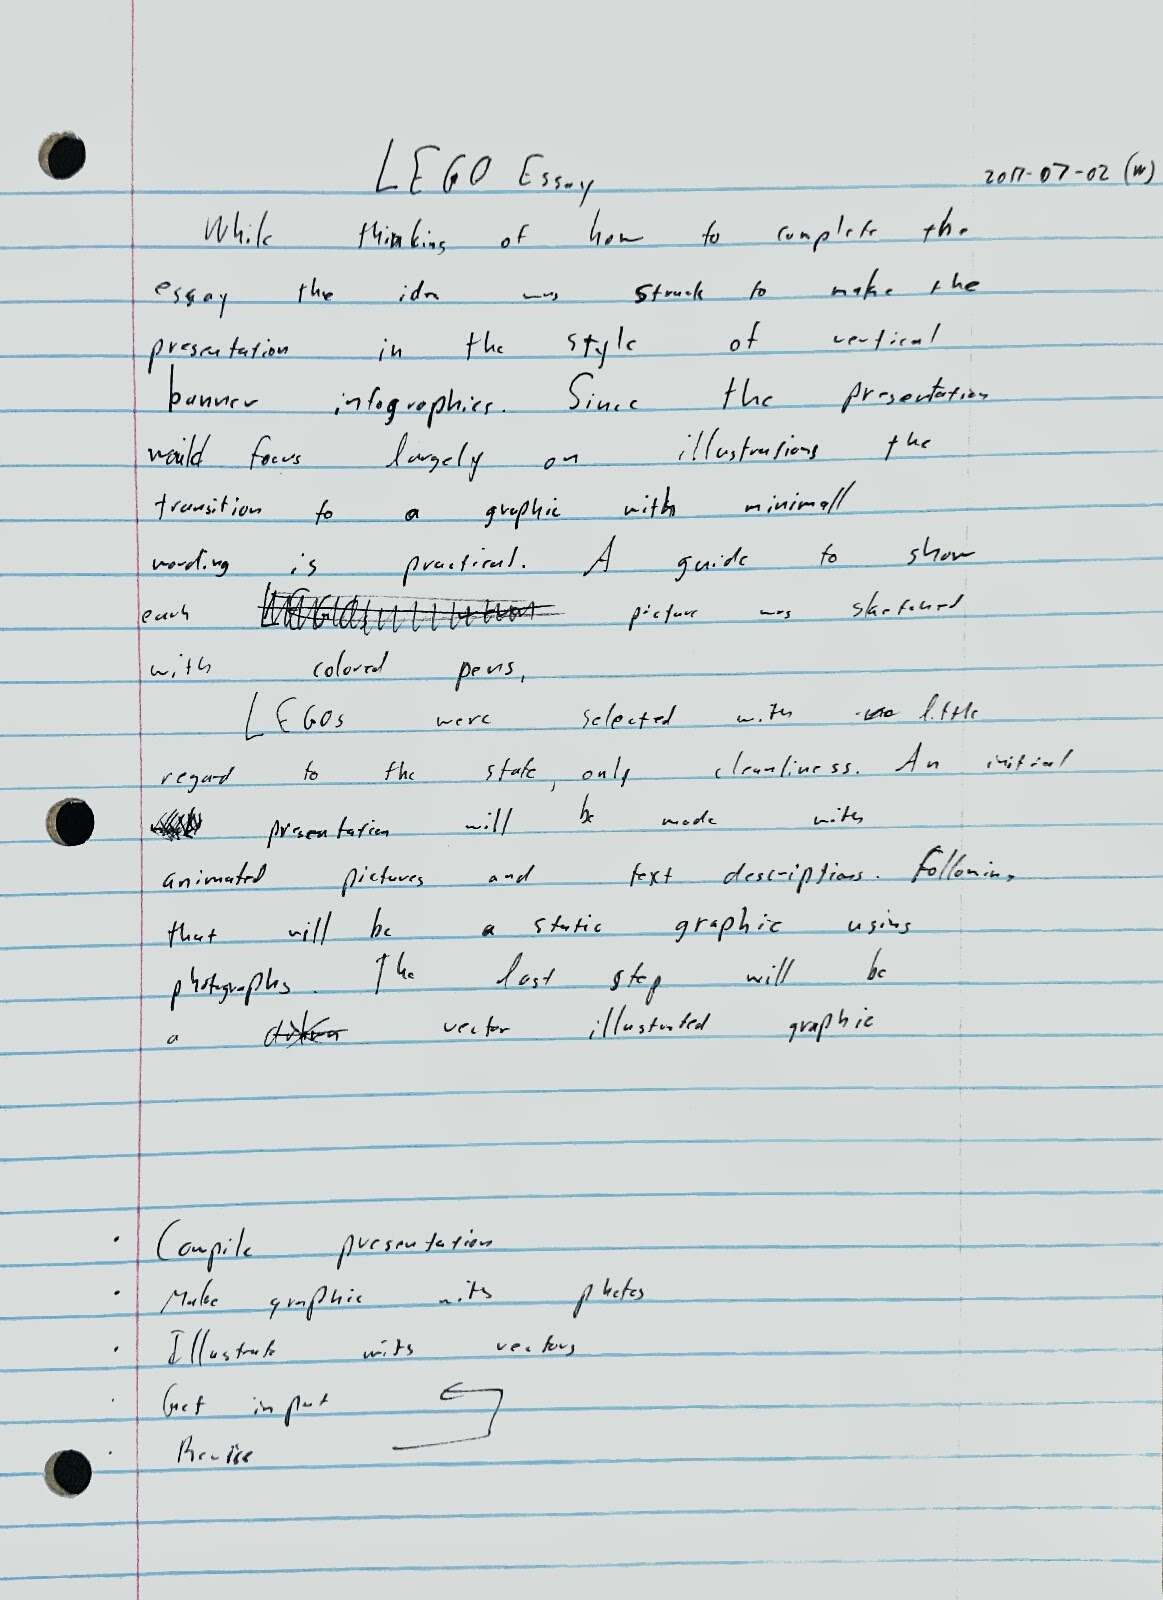 LEGO Essay
2017-07-02 (W)
While thinking of how to complete the
essay the idea was struck to make the
presentation in the style of vertical
banner infographics. Since the presentation
would focus largely on illustrations the
transition to a graphic with minimall
wording is practical. A guide to show
each picture was sketched
with colored pens,
LEGOs were selected with little
regard to the state, only cleanliness. An initial
presentation will be made with
animated pictures and text descriptions. Following
that will be a static graphic using
photographs. The last step will be
a vector illustrated graphic
· Compile presentation
· Make graphic with photos
· Illustrate with vectors
· Get input
· Revise